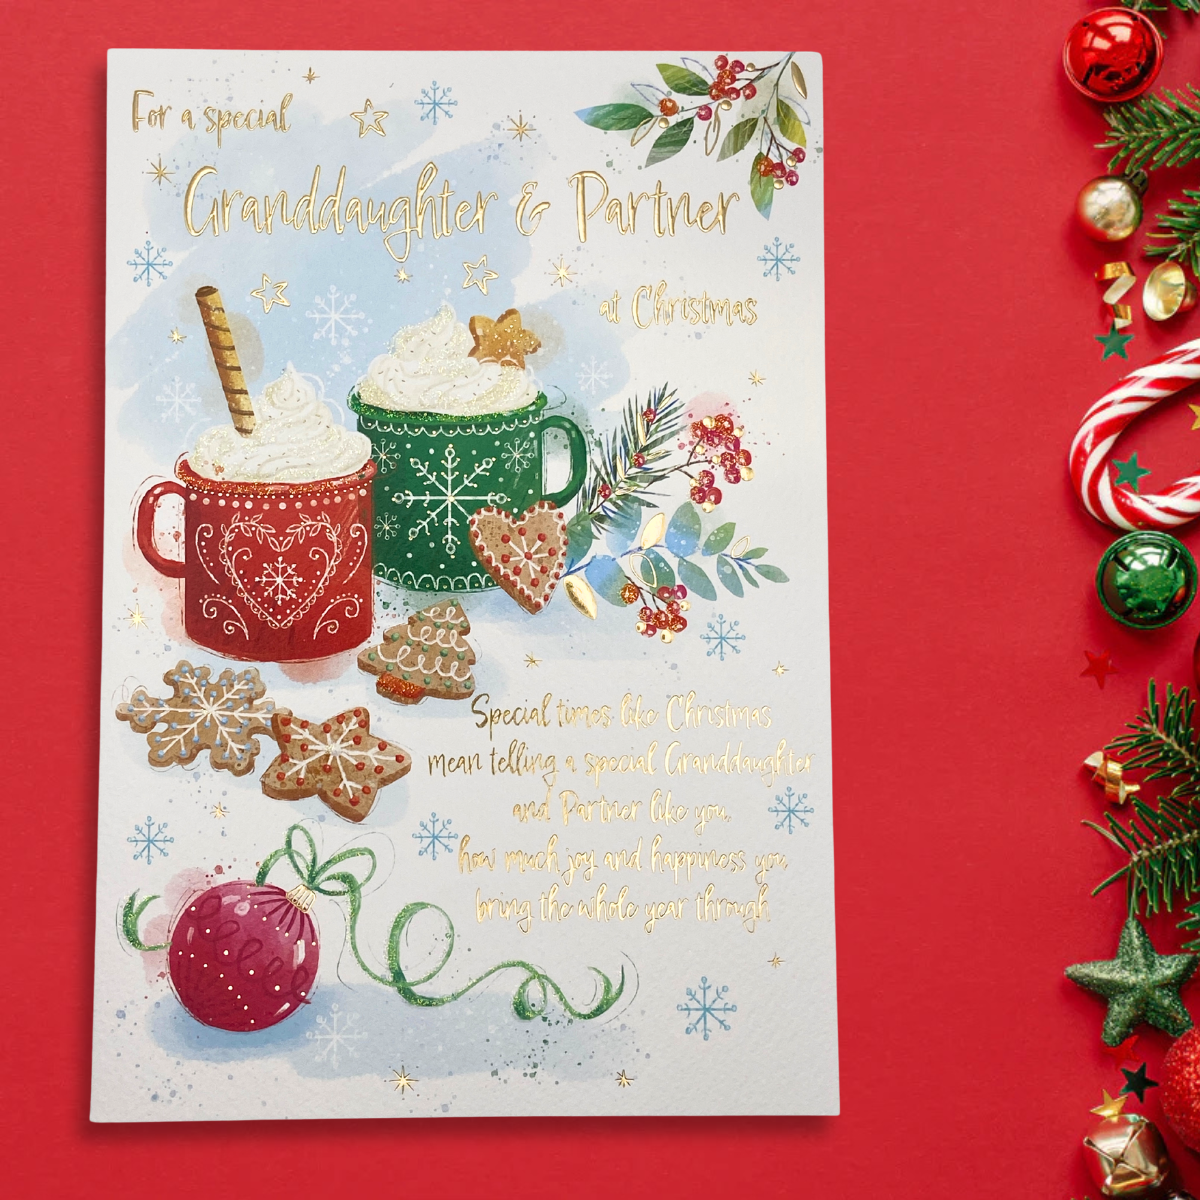 For a special
Granddaughter & Partner
at Christmas
Special times like Christmas
mean telling a special Granddaughter
and Partner like you,
how much joy and happiness you
bring the whole year through